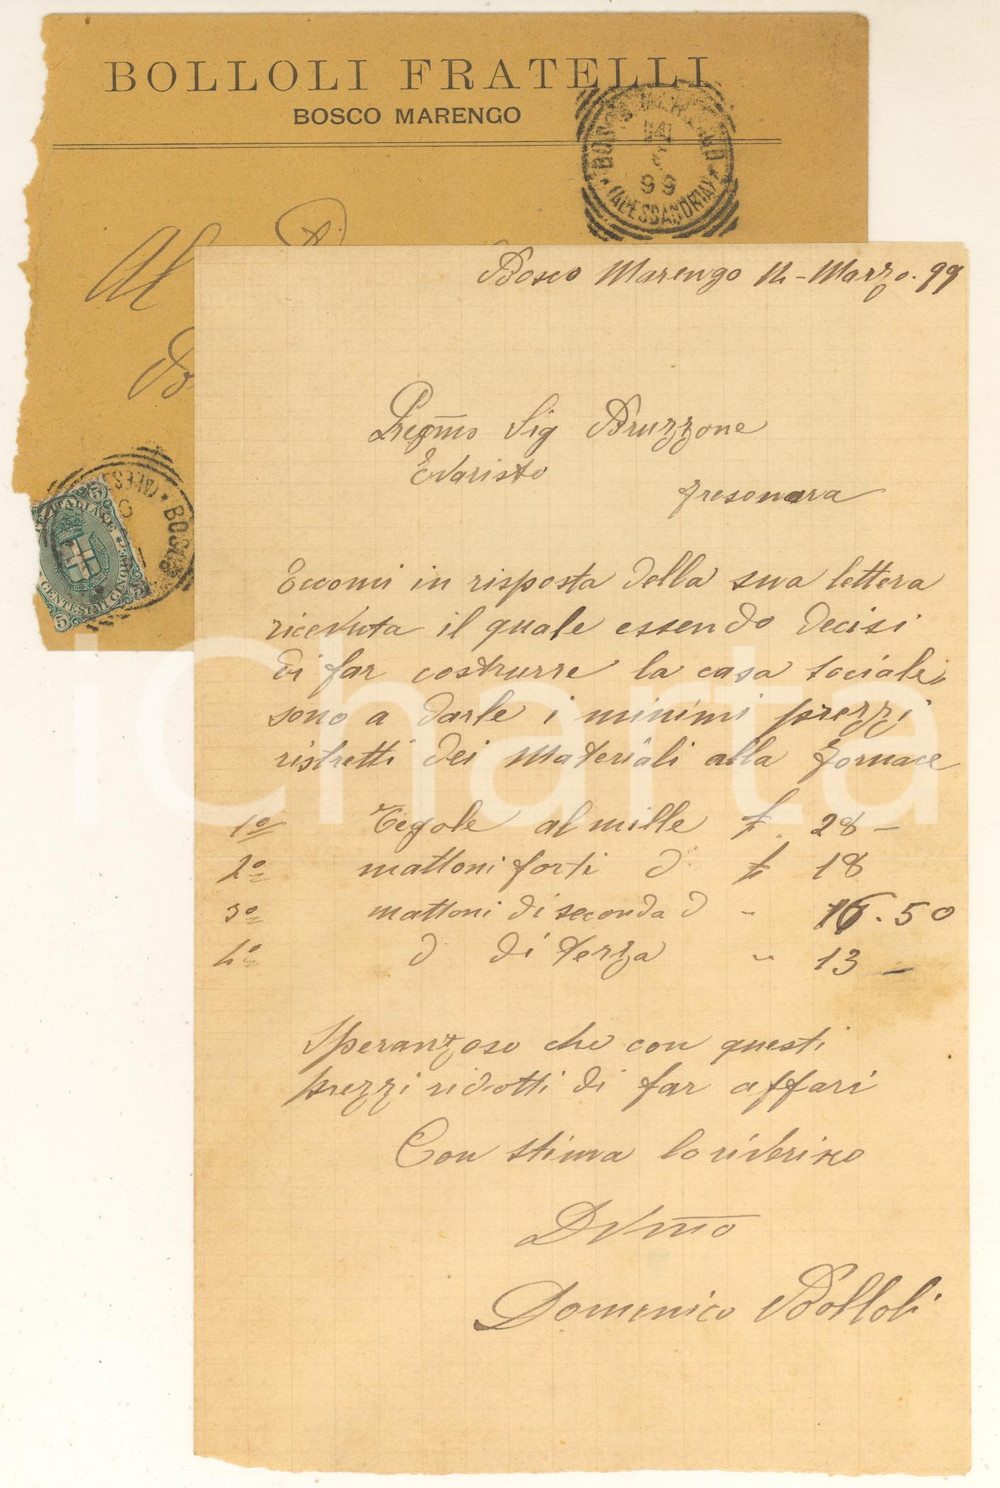 BOLLOLI FRATELLI
BOSCO MARENGO
BOSCO MARENGO
99
(ALESSANDRIA)
Al
Bosco Marengo 14 - Marzo. 99
Pregmo Sig Bruzzone
Evaristo
fresonara
Eccomi in risposta della sua lettera
ricevuta il quale essendo decisi
di far costrurre la casa sociale,
sono a darle i minimi prezzi
ristretti dei Materiali alla fornace
1º Tegole al mille £. 28 –
2º mattoni forti d £ 18
3º mattoni di seconda d " 16.50
4º d di terza " 13 –
Speranzoso che con questi
prezzi ridotti di far affari
Con stima la riverisco
Dvmo
Domenico Bolloli
CENTESIMI CINQUE
5
5
5
iCharta